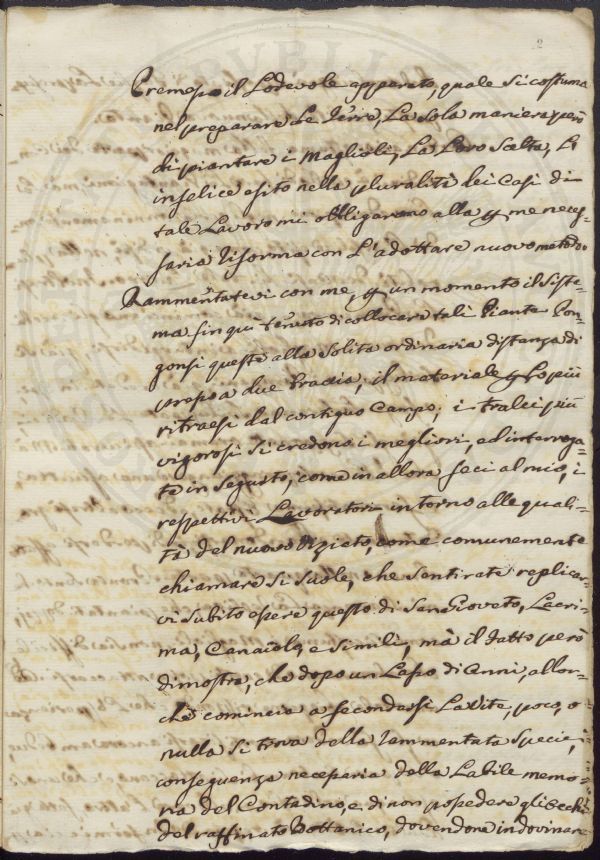 2
Premesso il Lodevole apparato, quale si costuma
nel preparare Le Terre, La sola maniera però
di piantare i Maglioli, La Loro Scelta, L'
infelice esito nella pluralità dei Casi di
tale Lavoro mi obbligarono alla p me neces-
saria riforma con L'adottare nuovo metodo
Rammentatevi con me, p un momento il siste-
ma fin quì tenuto di collocare tali Piante Pon-
gonsi queste alla solita ordinaria distanza di
presso a due Braccia; il materiale p Lo più
ritraesi dal contiguo Campo; i tralci più
vigorosi si credono i megliori, ed interroga-
te in seguito, come in allora feci al mio, i
respettivi Lavoratori intorno alle quali-
tà del nuovo come comunemente
chiamare si suole, che sentirete replicar-
vi subito essere questo di SanGioveto, Lacri-
ma, Canaiolo, e simili, mà il fatto però
dimostra, che dopo un Lasso di Anni, allor-
chè comincia a fecondarsi La Vite, poco, o
nulla si trova della rammentata specie,
conseguenza necessaria della Labile memo-
ria del Contadino, e di non possedere gli occhi
del raffinato Bottanico, dovendone indovinare